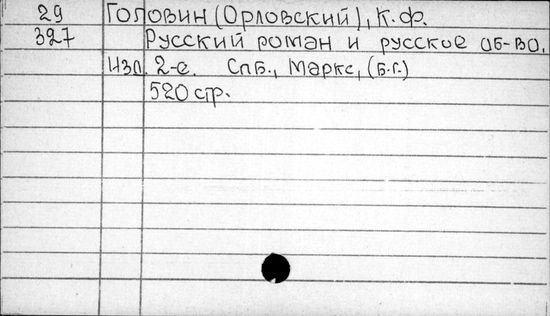 29 Головин (Орловский), К.Ф.
327 Русский роман и русское об-во.
Изд. 2-е. Спб., Маркс, (б.г.)
520 стр.